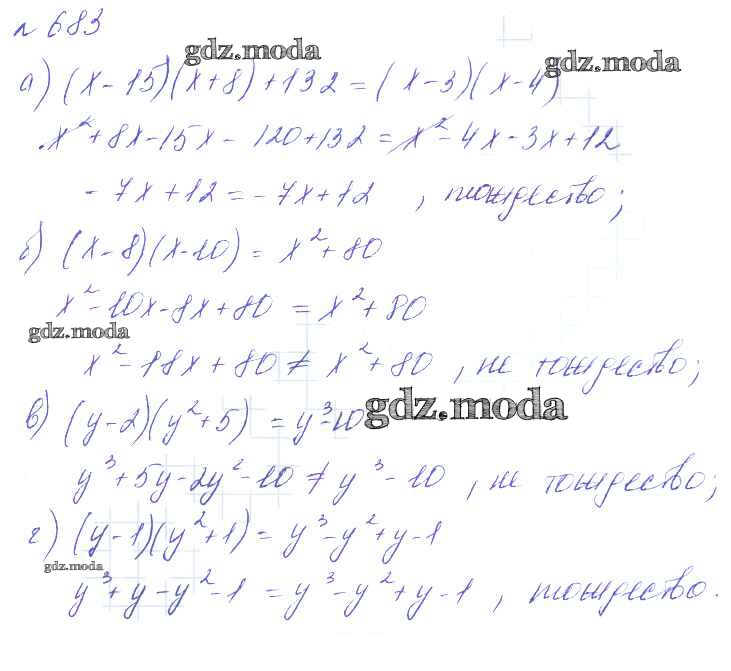 № 683
gdz.moda
gdz.moda
а) (x-15)(x+8)+132=(x-3)(x-4)
x²+8x-15x-120+132=x²-4x-3x+12
-7x+12=-7x+12, тождество;
б) (x-8)(x-10)=x²+80
x²-10x-8x+80=x²+80
gdz.moda
x²-18x+80≠x²+80, не тождество;
в) (y-2)(y²+5)=y³-10
gdz.moda
y³+5y-2y²-10≠y³-10, не тождество;
г) (y-1)(y²+1)=y³-y²+y-1
gdz.moda
y³+y-y²-1=y³-y²+y-1, тождество.